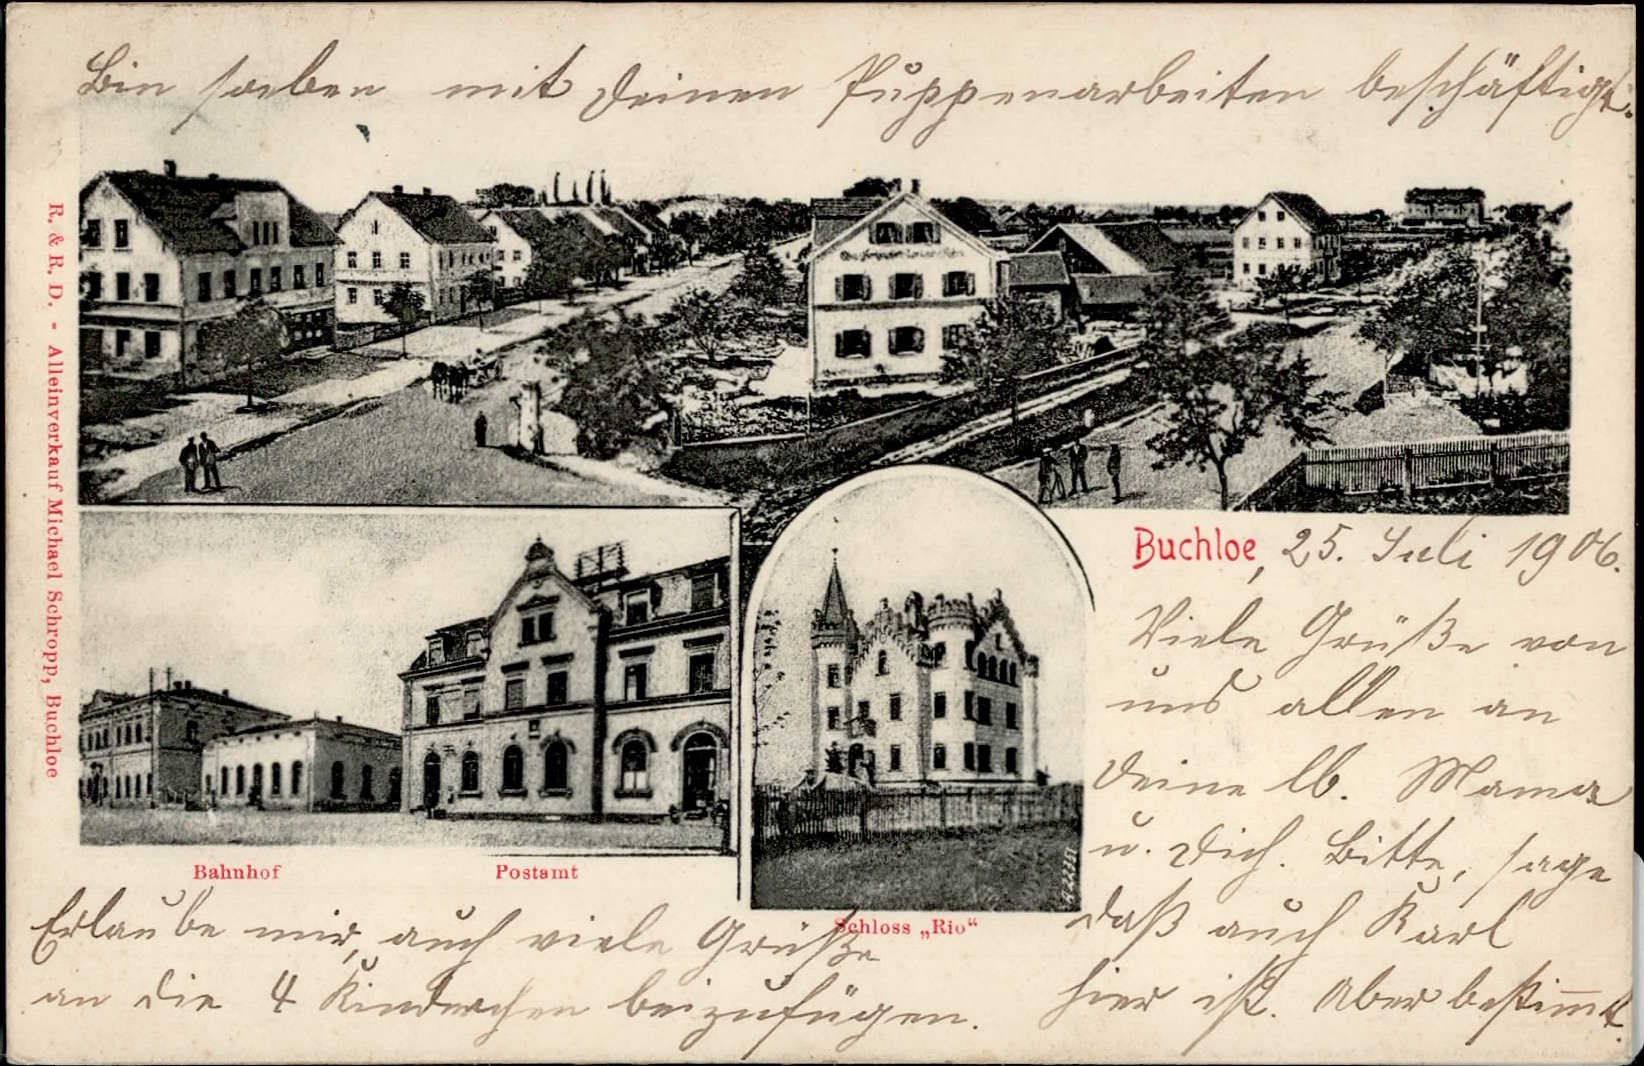 Bin soeben mit Deinen Puppenarbeiten beschäftigt.
R. & R. D. - Alleinverkauf Michael Schropp, Buchloe
Buchloe, 25. Juli 1906.
Viele Grüße von
uns allen an
Deine lb. Mama
u. Dich. Bitte, sage
daß auch Karl
hier ist. Aber bestimmt.
Bahnhof
Postamt
Schloss „Rio“
Erlaube mir, auch viele Grüße
an die 4 Kinderchen beizufügen.